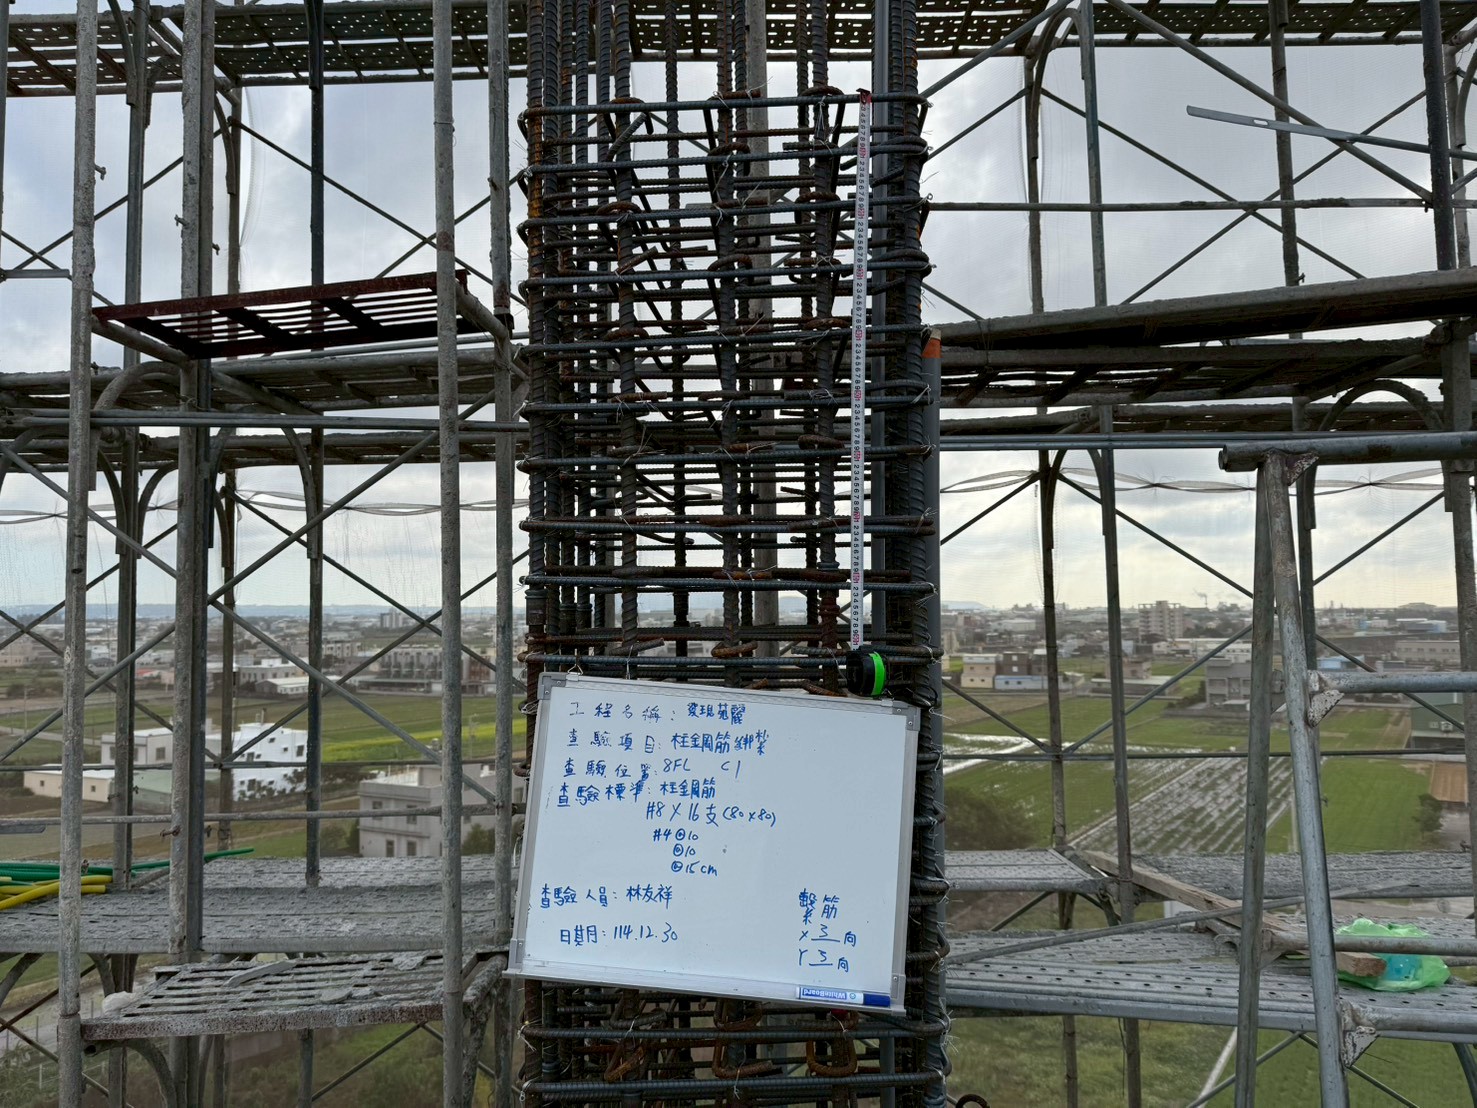 工程名稱：發現苑麗
查驗項目：柱鋼筋綁紮
查驗位置：8FL C1
查驗標準：柱鋼筋
#8 X 16支 (80x80)
#4 @10
@10
@15cm
查驗人員：林友祥
日期：114.12.30
繫筋
X 3 向
Y 3 向
WhiteBoard